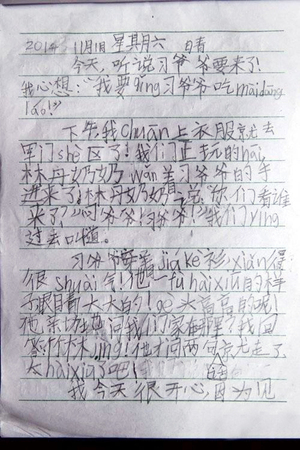 2014年11月1日 星期六 晴
今天,听说习爷爷要来了!
我心想:"我要qǐng习爷爷吃mài dāng
láo!"
下午我chuān上衣服就去
军门shè区了!我们正玩的hāi,
林丹奶奶wǎn着习爷爷的手
进来了!林丹奶奶说:"你们看谁
来了?"习爷爷!习爷爷!"我们yíng
过去叫道。
习爷爷穿着jiá kè衫xiǎn得
很shuài气!他一fù hǎi xiá的样
子眼睛大大的!gè头高高的呢!
他亲切地问我们家在哪里?我回
答 他才问两句就走了
太hài xiū了吧!
我今天很开心,因为见